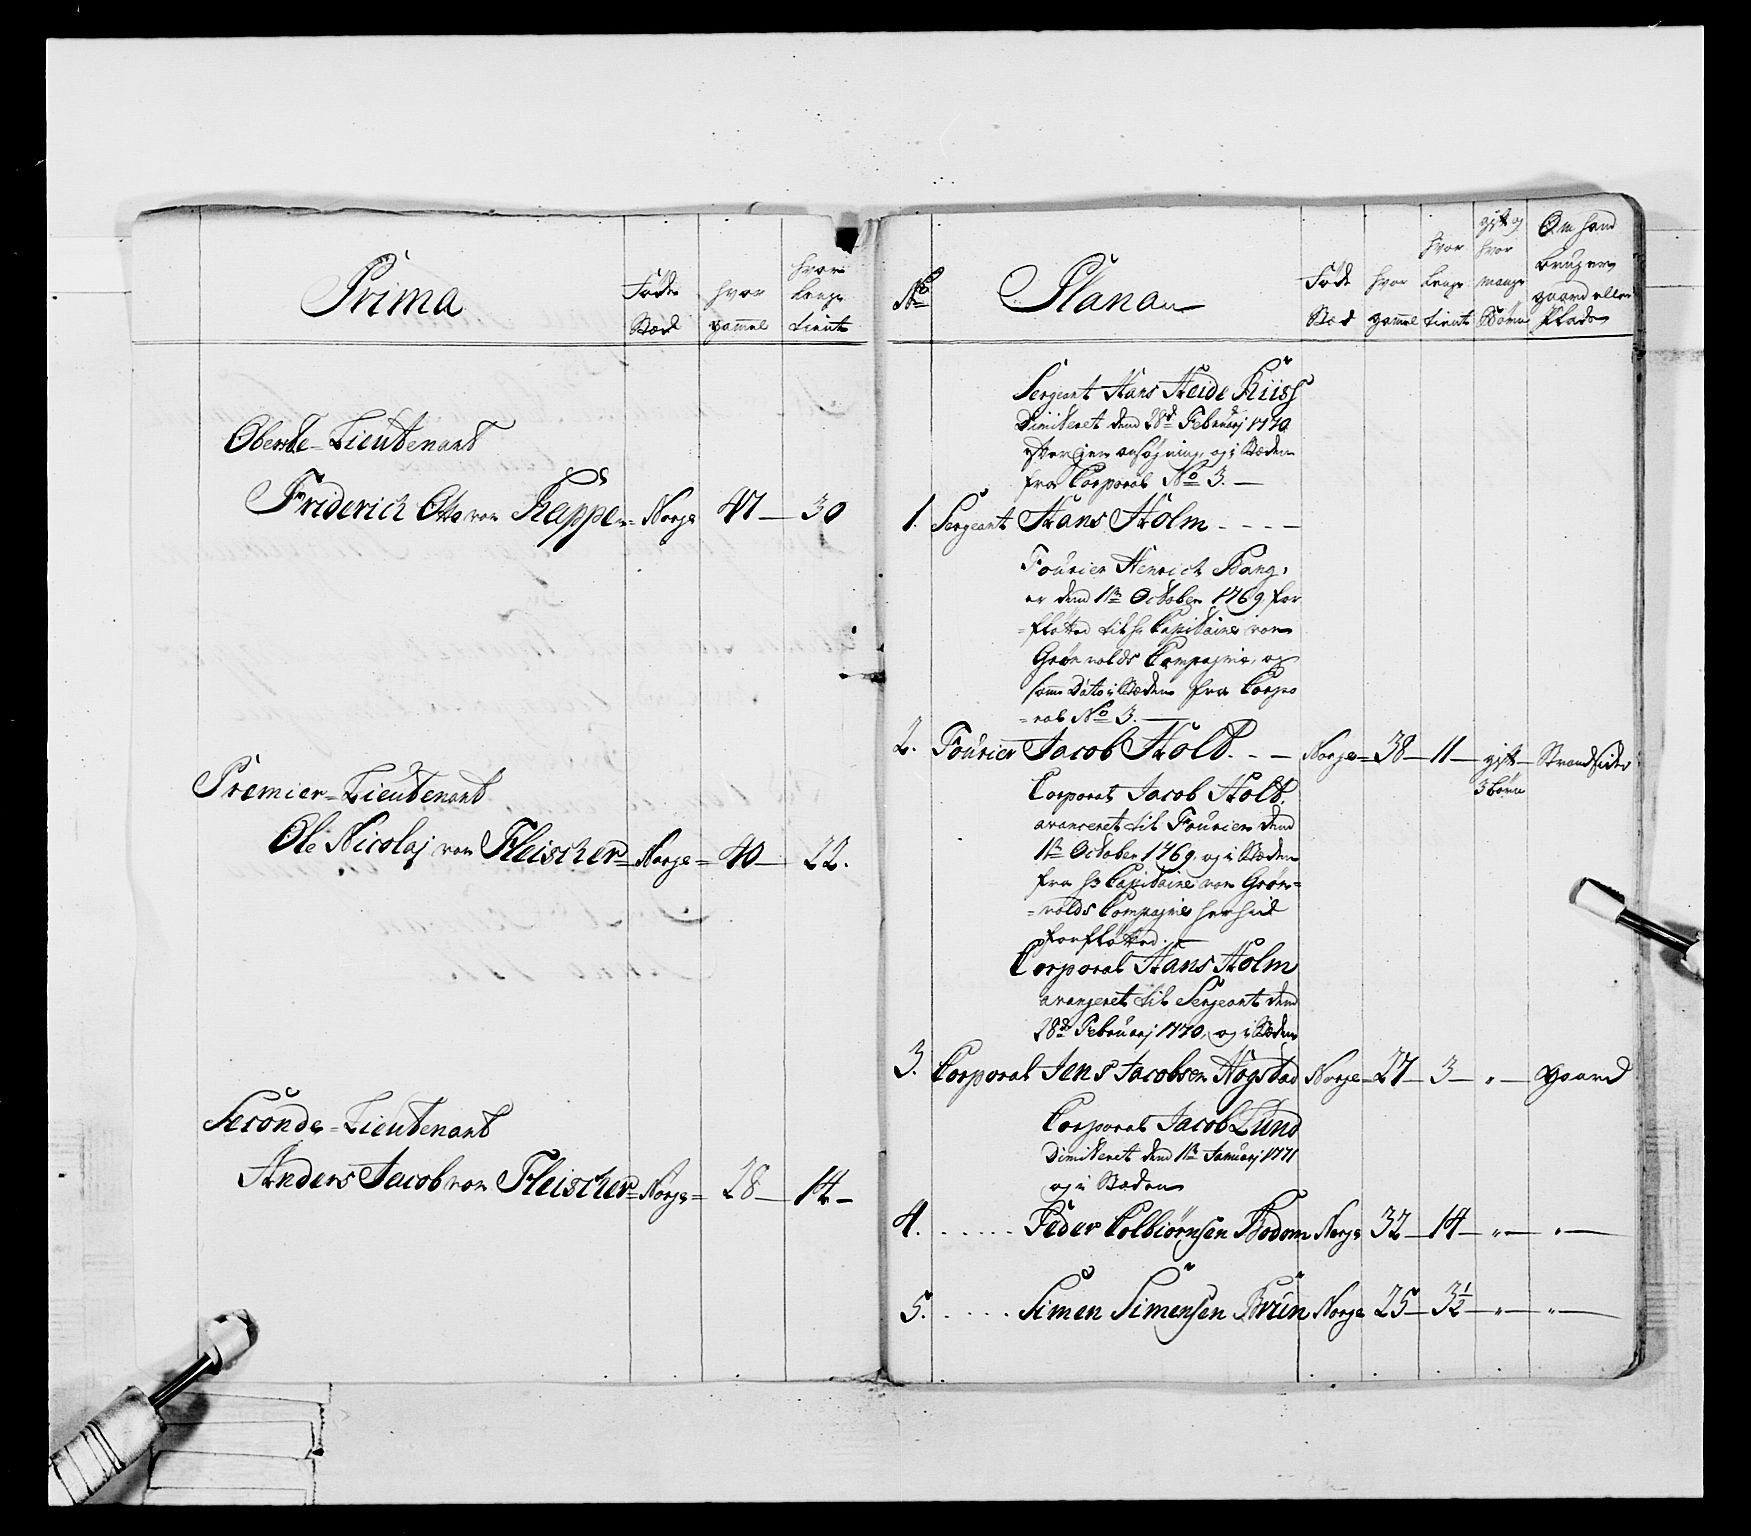 Prima
Føde
Stæd
hvor
gammel
hvor
lenge
tient
Oberste-Lieutenant
Friderich Otto von Rappe Norge 47 30
Premier-Lieutenant
Ole Nicolaj von Fleischer Norge 40 22.
Seconde-Lieutenant
Anders Jacob von Fleischer Norge 28 14
No
Plana
Føde
Stæd
hvor
gammel
hvor
lenge
tient
gift og
hvor
mange
Børn
Om hand
bruger
gaard eller
Plads
Sergeant Hans Heide Riiss
Dimiteret dend 28d Februarj 1770
efter ansøgning, og i Stæden
fra Corporal No 3.
1. Sergeant Hans Holm
Fourier Henrich Bang,
er dend 1te October 1769 for
=fløtted til Hr Capitaine von
Grønvolds Compagnie, og
samme Dato i Stæden fra Corpo
=ral No 3.
2. Fourier Jacob Holt Norge 38 11 gift Strandsider
3 børn
Corporal Jacob Holt,
avanceret til Fourier dend
1te October 1769, og i Stæden
fra Hr Capitaine von Grøn=
=volds Compagnie herhid
forfløtted.
Corporal Hans Holm
avangeret til Sergeant dend
28de Februarj 1770, og i Stæden
3. Corporal Jens Jacobsen Hogstad Norge 27 3 " gaard
Corporal Jacob Lund
Dimiteret dend 1te Januarj 1771
og i Stæden
4. ..... Peder Colbiørnsen Bodom Norge 32 14 " "
5. ..... Simen Simensen Bruun Norge 25 3½ " "